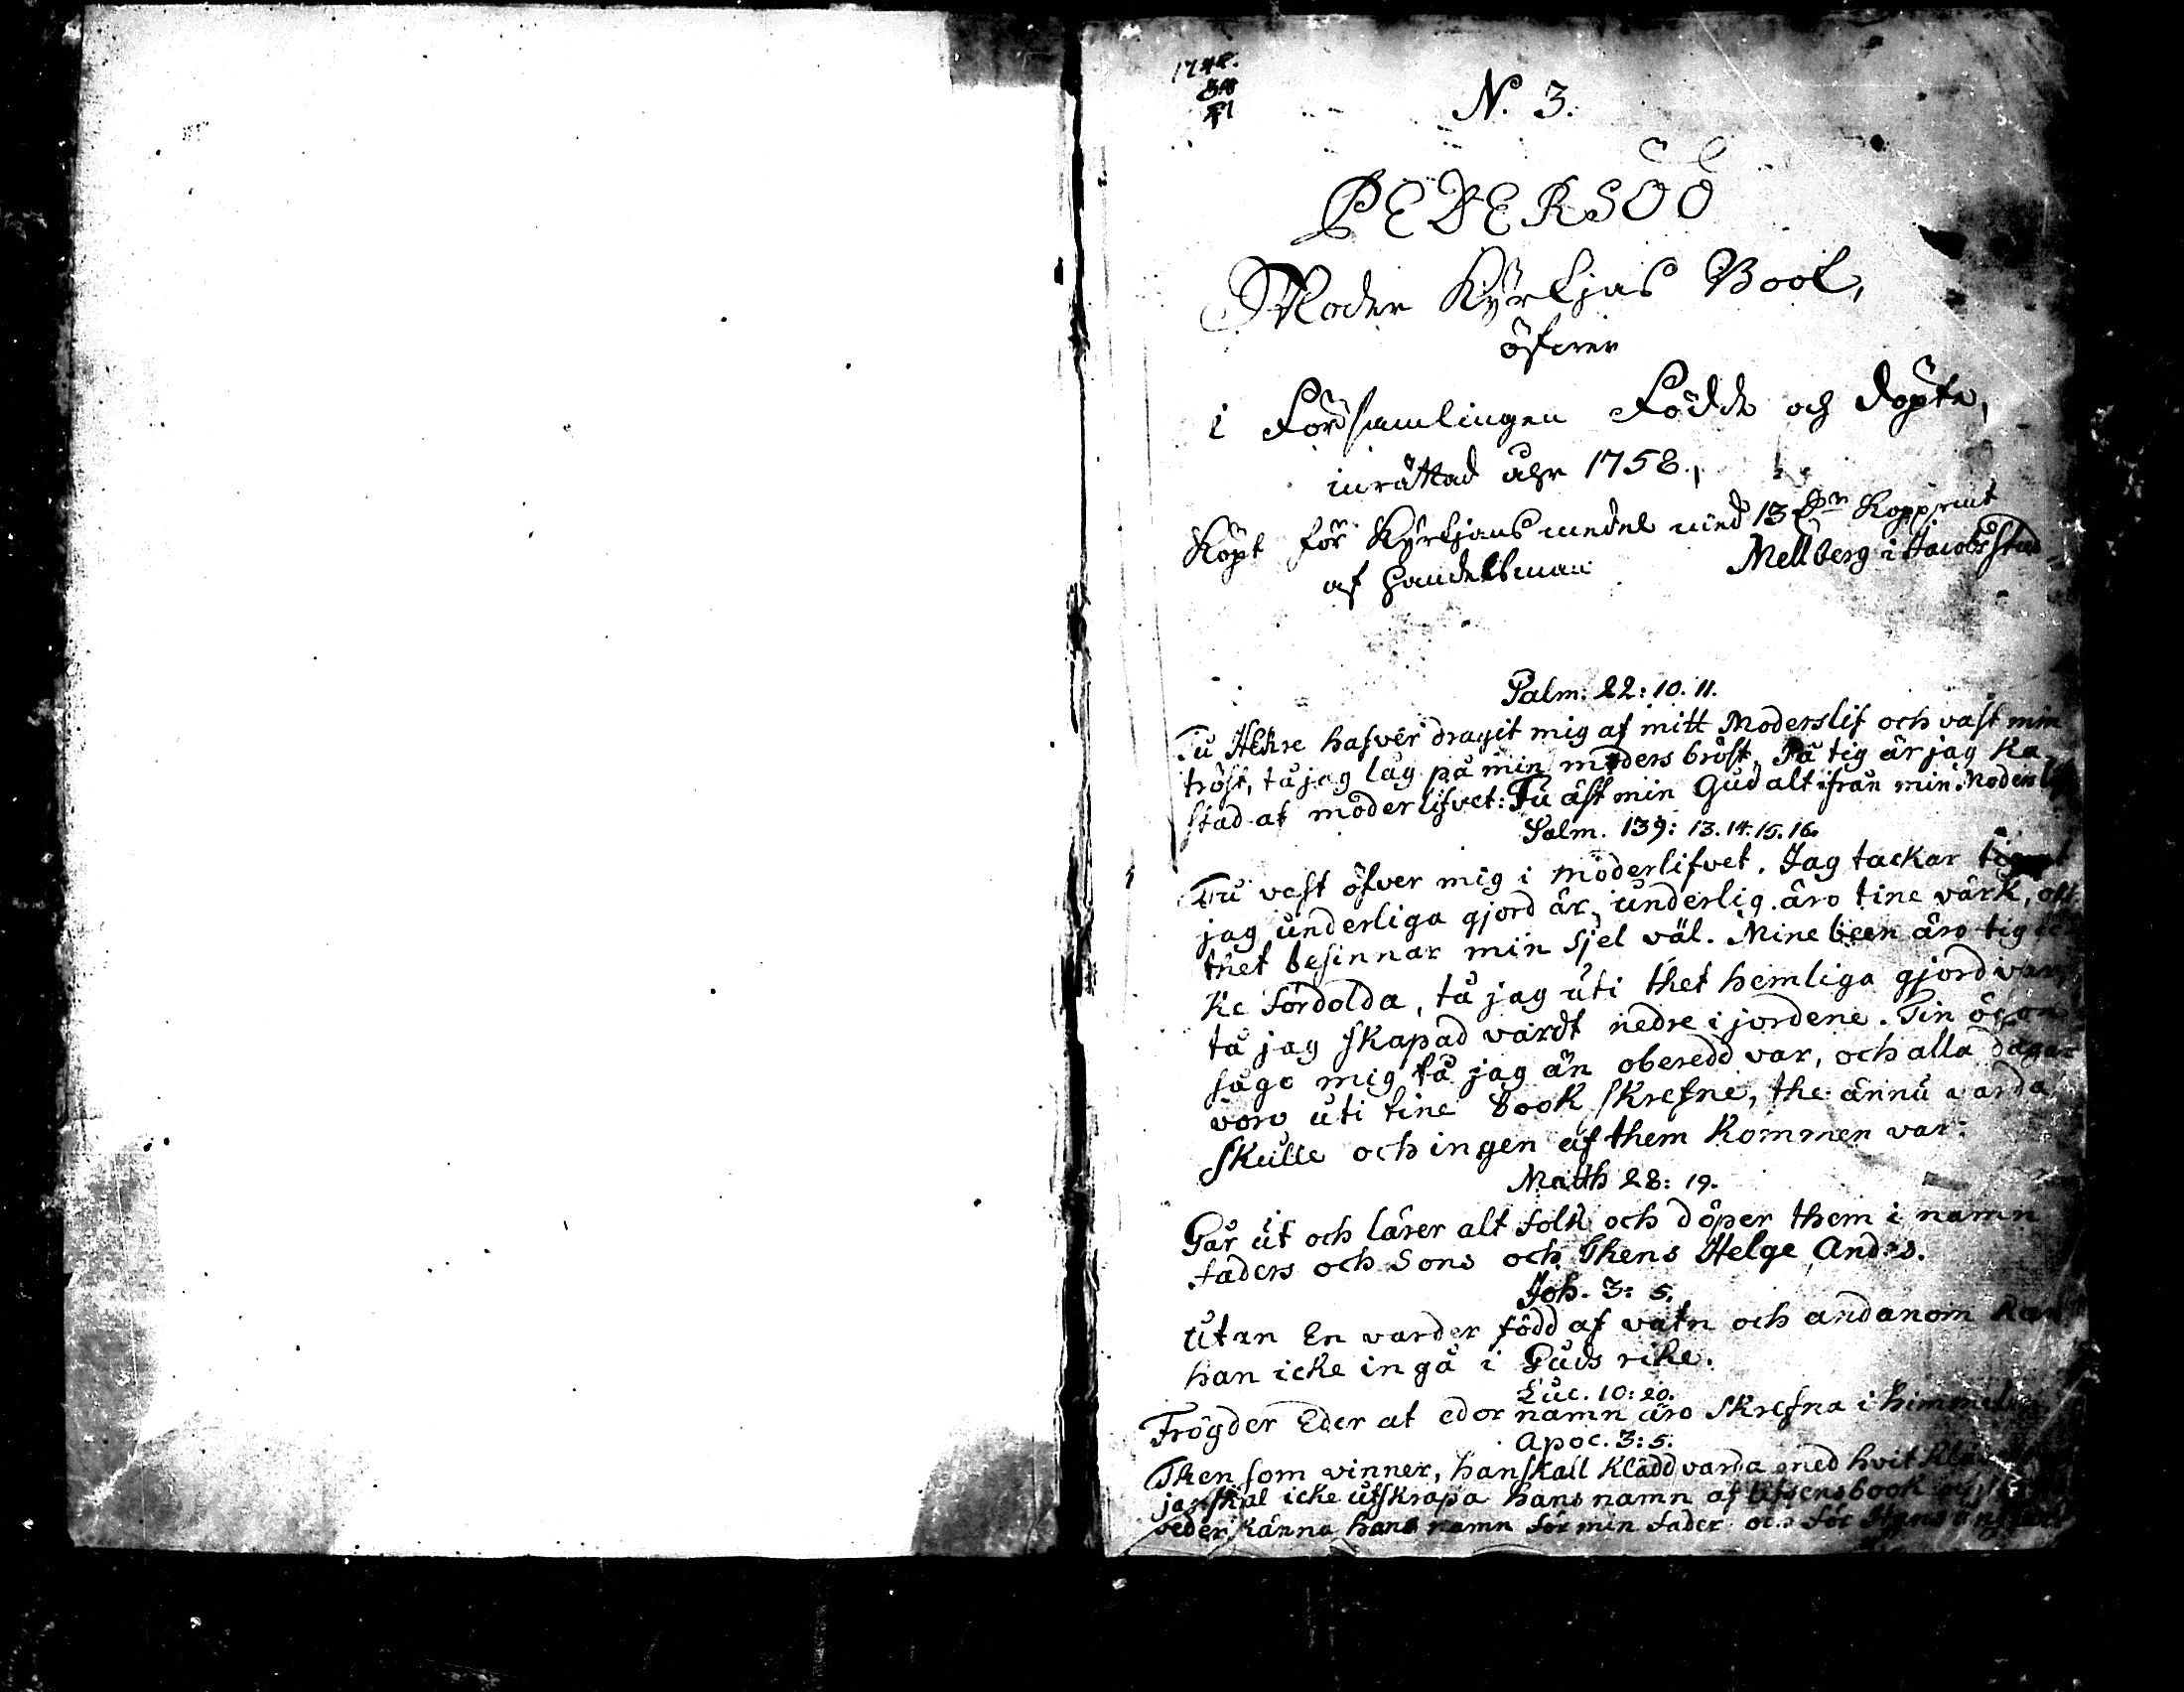 N. 3.
PEDERSÖÖ
Moder Kyrkjas Book,
öfwer
i Församlingen Födde och döpte,
inrättad åhr 1758.,
Köpt för Kyrkjans medel med 13 Kopp:mt
af Handelsman Mellberg i Jacobstad
Psalm. 22: 10. 11.
Tu HErre hafver dragit mig af mitt Moderslif och vast min
tröst, tå jag låg på min moders bröst, På tig är jag ka
stad af moderlifvet: Tu äst min Gud alt ifrån min Moders
Psalm. 139: 13. 14. 15. 16.
Tu vast öfver mig i moderlifvet. Jag tackar tig at
jag underliga gjord är, underlig äro tine värk, och
thet besinnar min sjel väl. Mine been äro tig ic
ke fördolda, tå jag uti thet hemliga gjord var,
tå jag skapad vardt nedre i jordene. Tin ögon
sågo mig tå jag än oberedd var, och alla dagar
voro uti tine book skrefne, the ännu varda
skulle och ingen af them kommen var.
Matth 28: 19.
Går ut och lärer alt folk och döper them i namn
faders och Sons och Thens Helge Andes.
Joh. 3: 5.
Utan En varder född af vatn och andanom kan
han icke ingå i Guds rike.
Luc. 10: 20.
Frögder Eder at edor namn äro skrefna i himmelen
Apoc. 3: 5.
Then som vinner, han skall klädd varda med hvit
jag skal icke utskrapa hans namn af lifsens book
veder känna hans namn för min fader och för Hans